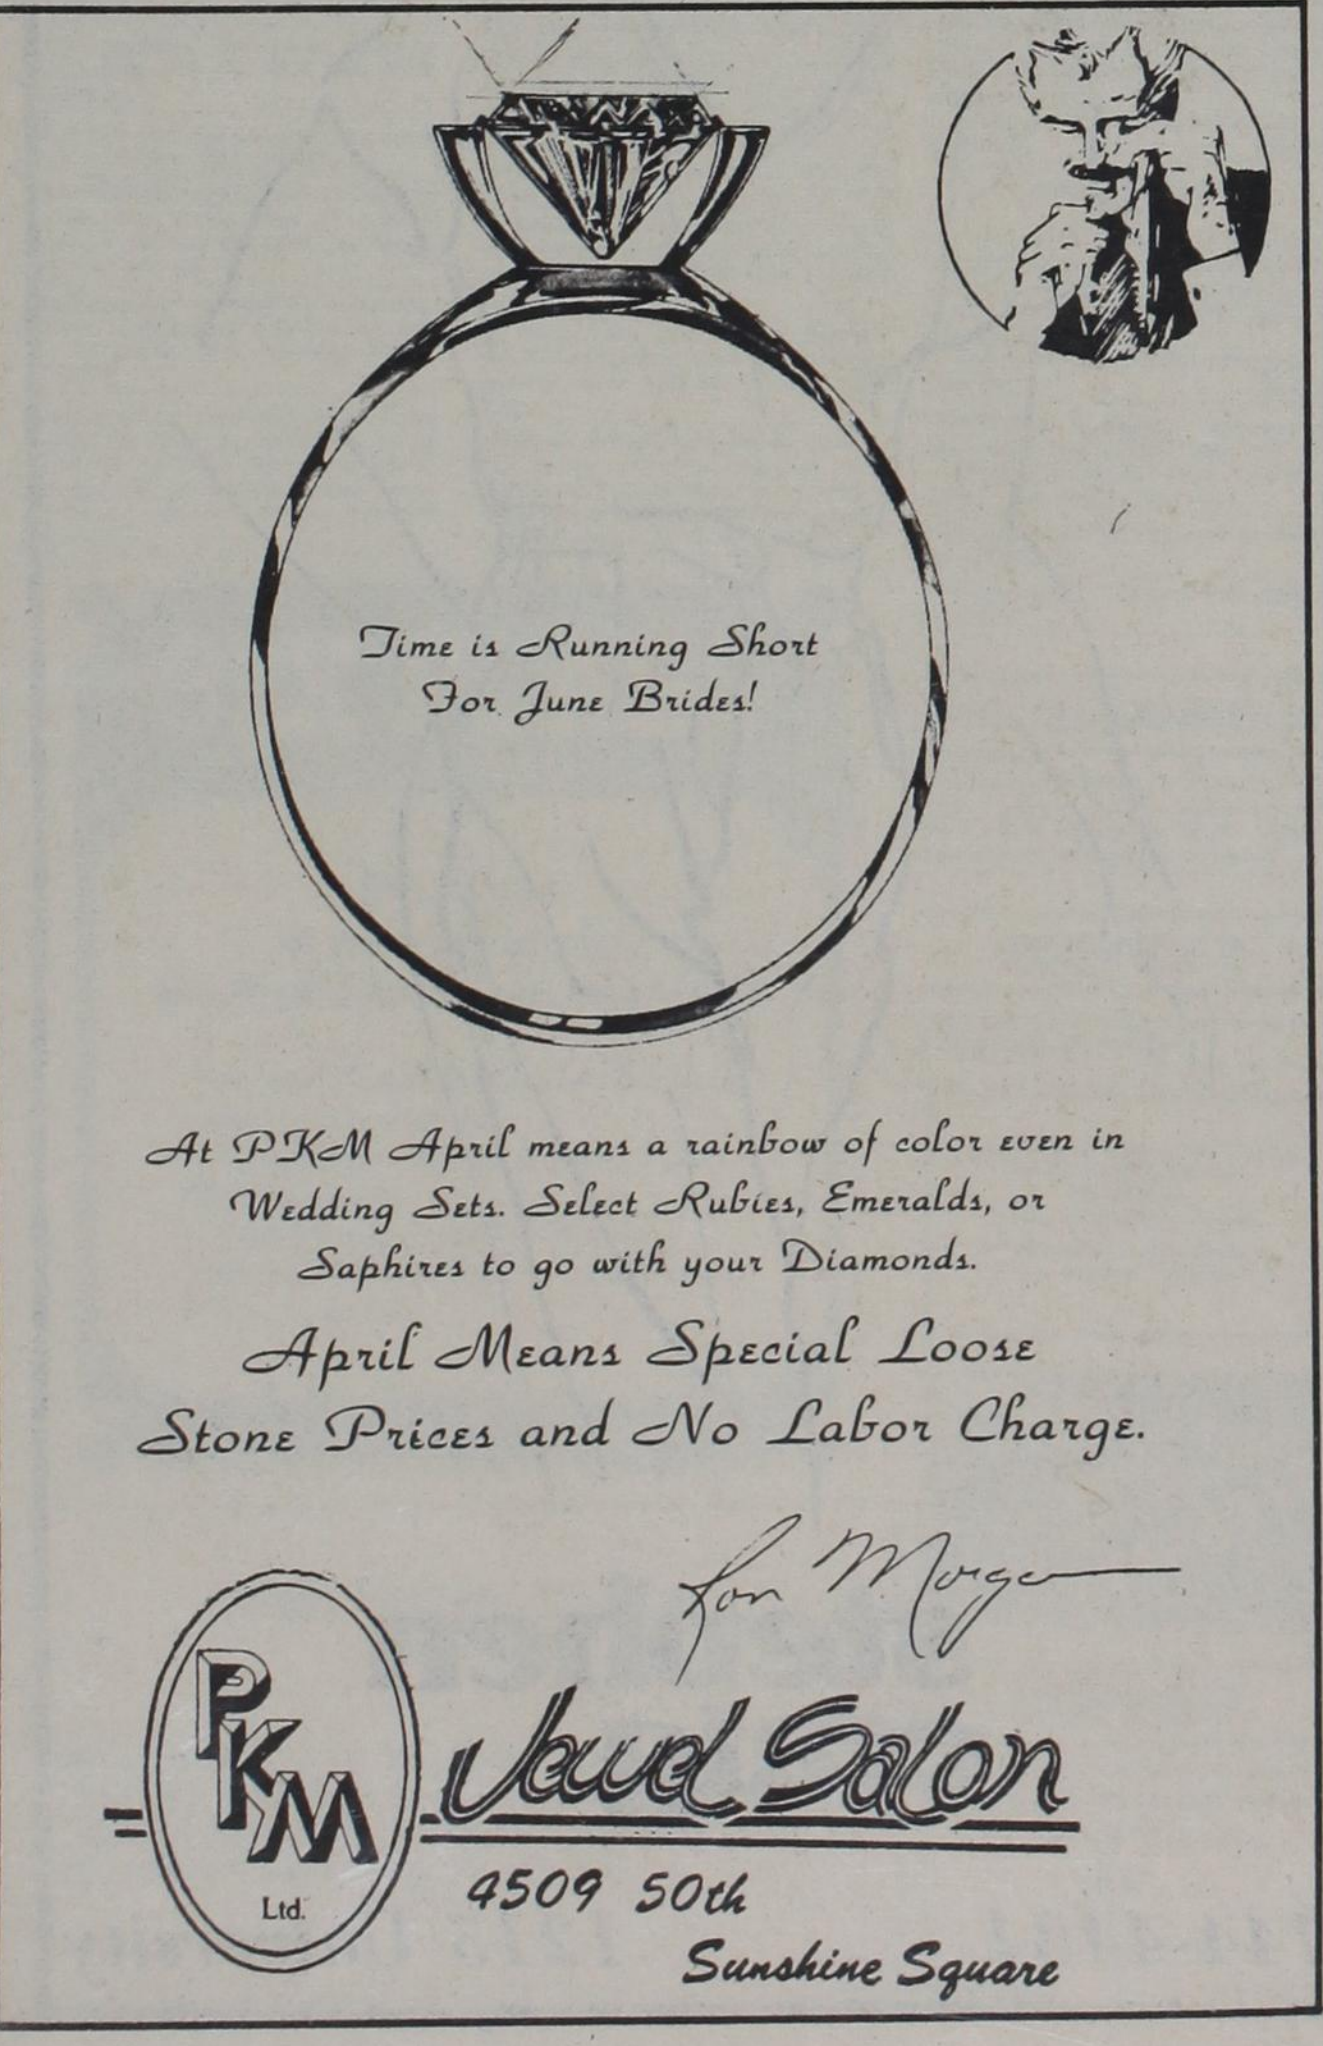 Time is Running Short
For June Brides!
At PKM April means a rainbow of color even in
Wedding Sets. Select Rubies, Emeralds, or
Saphires to go with your Diamonds.
April Means Special Loose
Stone Prices and No Labor Charge.
Ron Morgan
PKM
Ltd.
Jewel Salon
4509 50th
Sunshine Square